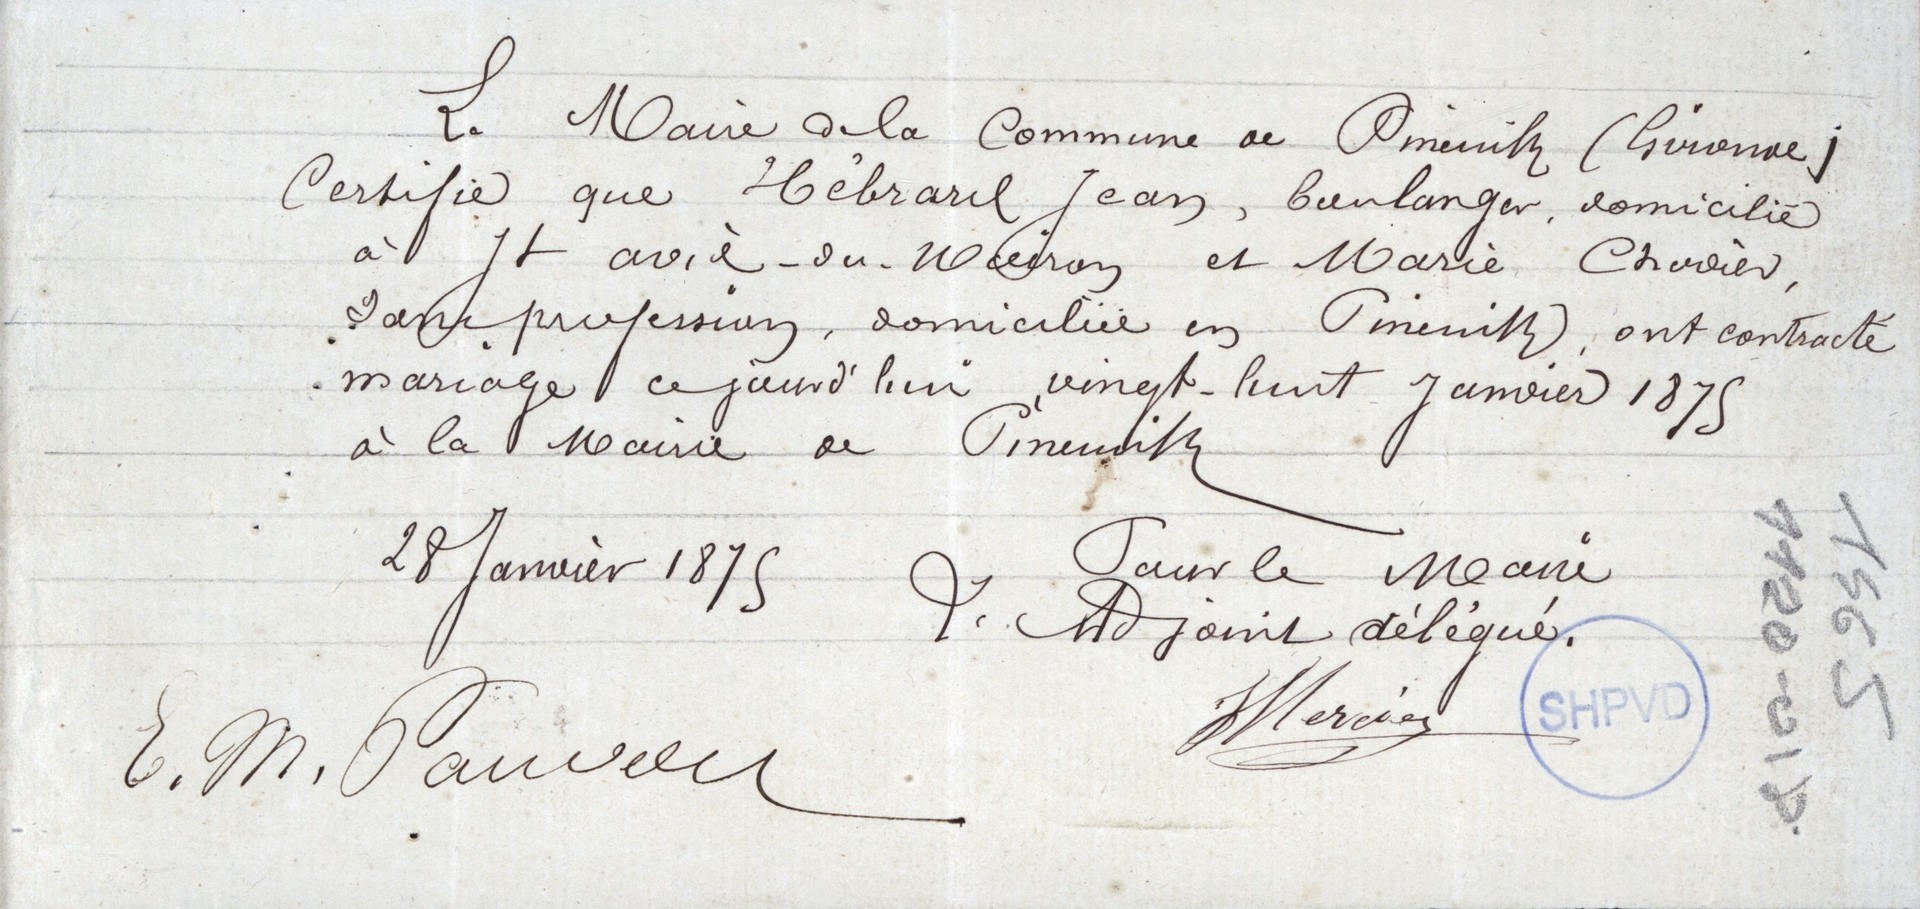 Le Maire de la Commune de Pineuilh (Gironde)
Certifie que Hébrard Jean, boulanger, domicilié
à St avit-du-Moiron et Marie
Sans profession, domiciliée en Pineuilh, ont contracté
mariage cejourd'hui vingt-huit Janvier 1875
à la Mairie de Pineuilh
28 Janvier 1875
Pour le Maire
L. Adjoint délégué.
Mercier
E. M.
SHPVD